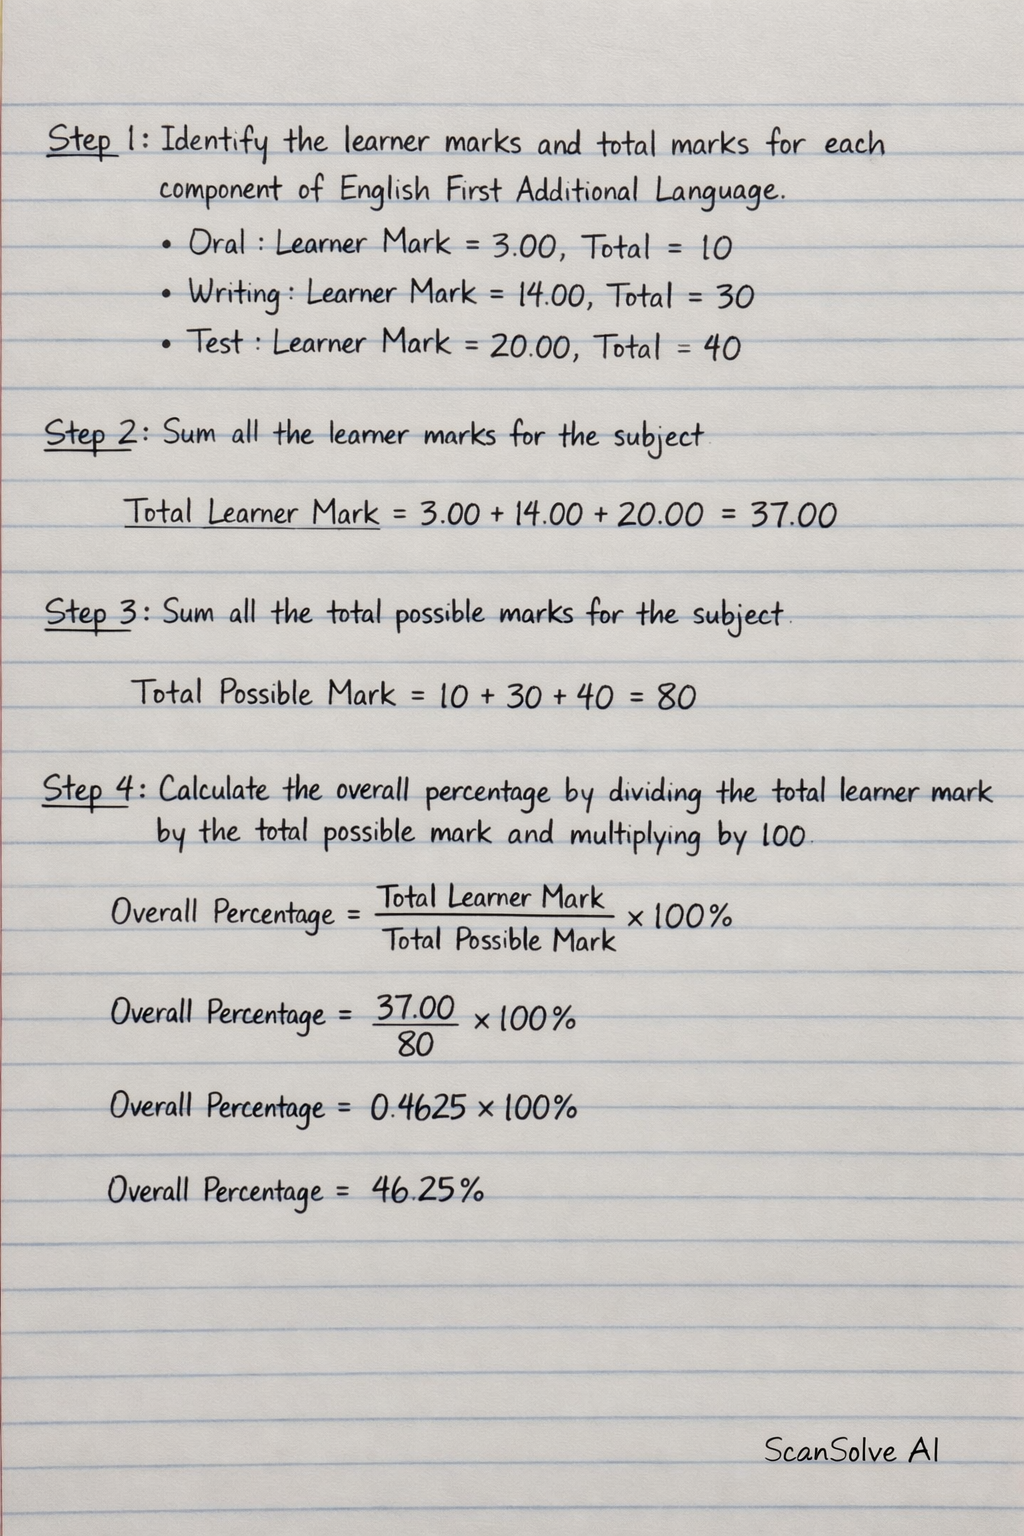 Step 1: Identify the learner marks and total marks for each
component of English First Additional Language.
• Oral : Learner Mark = 3.00, Total = 10
• Writing : Learner Mark = 14.00, Total = 30
• Test : Learner Mark = 20.00, Total = 40
Step 2: Sum all the learner marks for the subject
Total Learner Mark = 3.00 + 14.00 + 20.00 = 37.00
Step 3: Sum all the total possible marks for the subject.
Total Possible Mark = 10 + 30 + 40 = 80
Step 4: Calculate the overall percentage by dividing the total learner mark
by the total possible mark and multiplying by 100.
Overall Percentage = Total Learner Mark / Total Possible Mark × 100%
Overall Percentage = 37.00 / 80 × 100%
Overall Percentage = 0.4625 × 100%
Overall Percentage = 46.25%
ScanSolve AI